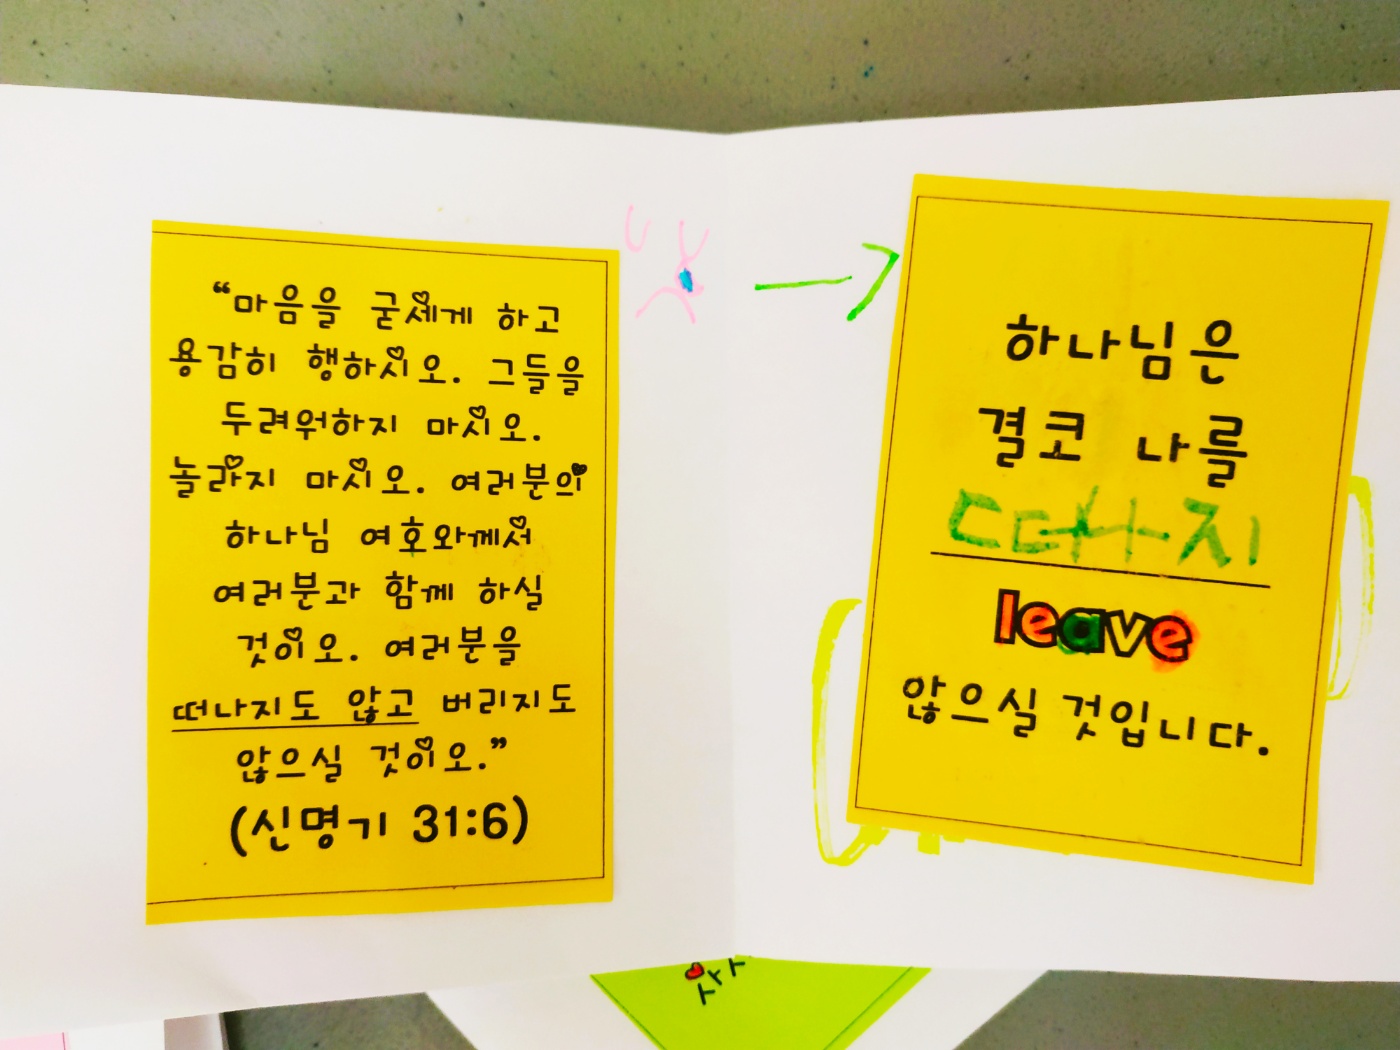 “마음을 굳세게 하고
용감히 행하시오. 그들을
두려워하지 마시오.
놀라지 마시오. 여러분의
하나님 여호와께서
여러분과 함께 하실
것이오. 여러분을
떠나지도 않고 버리지도
않으실 것이오.”
(신명기 31:6)
하나님은
결코 나를
떠나지
leave
않으실 것입니다.